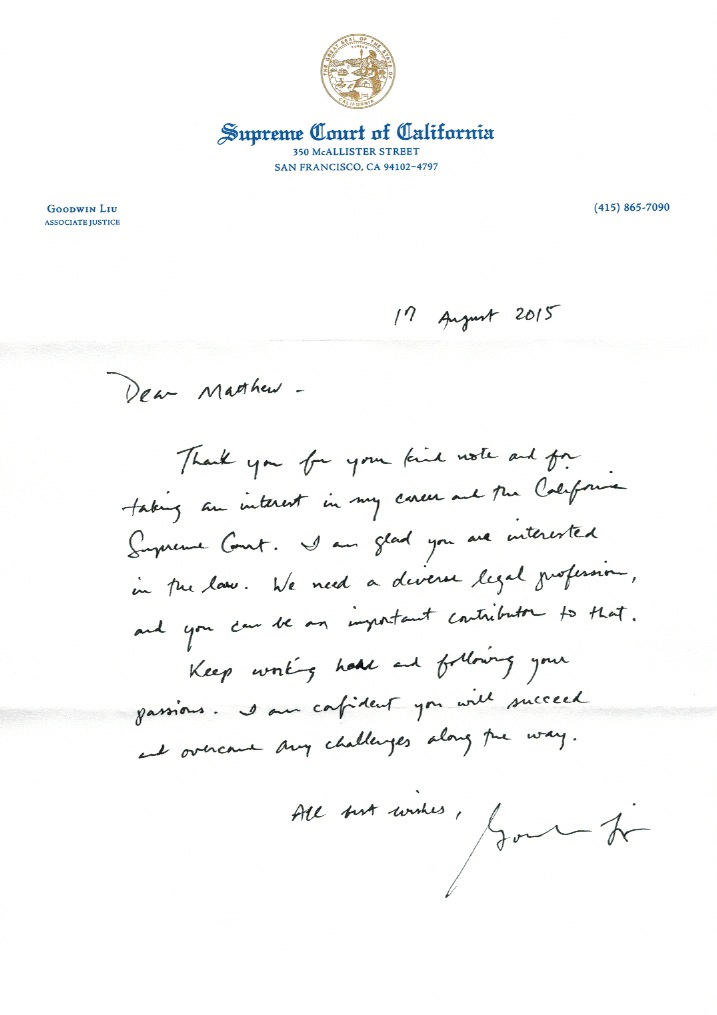 THE GREAT SEAL OF THE STATE OF CALIFORNIA
EUREKA
Supreme Court of California
350 McALLISTER STREET
SAN FRANCISCO, CA 94102-4797
GOODWIN LIU
ASSOCIATE JUSTICE
(415) 865-7090
17 August 2015
Dear Matthew -
Thank you for your kind note and for
taking an interest in my career and the California
Supreme Court. I am glad you are interested
in the law. We need a diverse legal profession,
and you can be an important contributor to that.
Keep working hard and following your
passions. I am confident you will succeed
and overcome any challenges along the way.
All best wishes,
Goodwin Liu